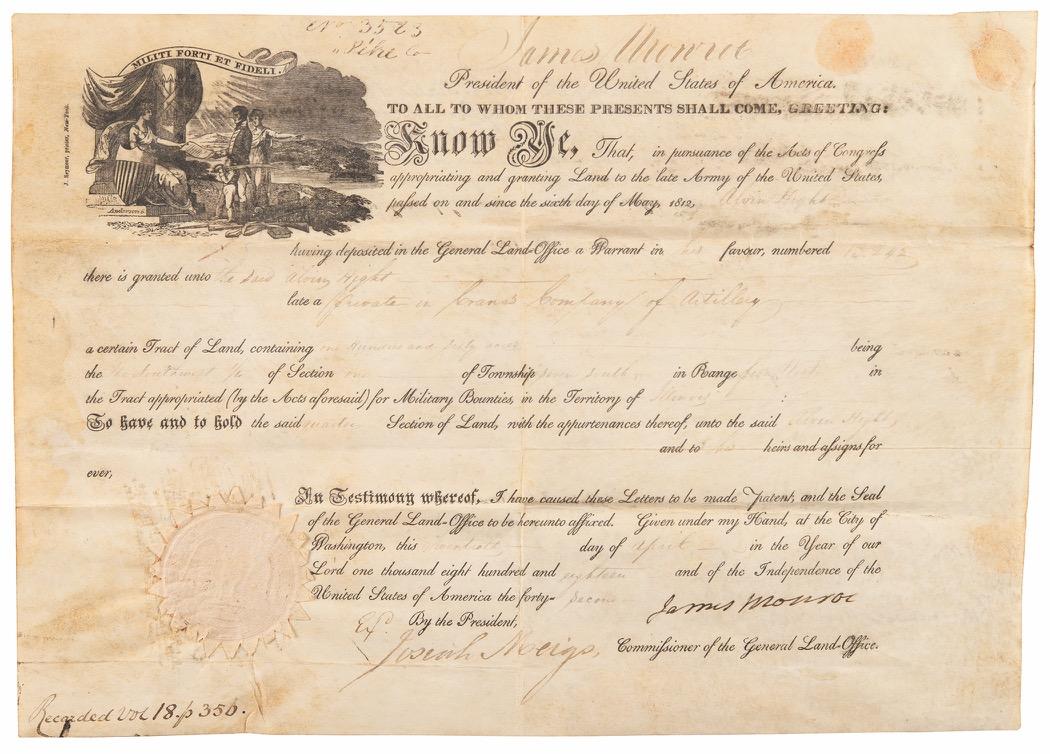 No. 3523
Pike Co
MILITI FORTI ET FIDELI.
J. Seymour, printer, New-York.
Anderson
James Monroe
President of the United States of America.
TO ALL TO WHOM THESE PRESENTS SHALL COME, GREETING:
Know Ye, That, in pursuance of the Acts of Congress
appropriating and granting Land to the late Army of the United States,
passed on and since the sixth day of May, 1812, Alvin Hight
having deposited in the General Land-Office a Warrant in his favour, numbered
there is granted unto the said Alvin Hight
late a Private in Crane's Company of Artillery
a certain Tract of Land, containing one hundred and sixty acres being
the Southwest of Section one of Township seven South in Range West in
the Tract appropriated (by the Acts aforesaid) for Military Bounties, in the Territory of Illinois :
To have and to hold the said quarter Section of Land, with the appurtenances thereof, unto the said Alvin Hight,
and to his heirs and assigns for
ever,
In Testimony whereof, I have caused these Letters to be made Patent, and the Seal
of the General Land-Office to be hereunto affixed. Given under my Hand, at the City of
Washington, this day of April in the Year of our
Lord one thousand eight hundred and eighteen and of the Independence of the
United States of America the forty-second
James Monroe
By the President,
Josiah Meigs, Commissioner of the General Land-Office.
Recorded Vol 18. p 350.